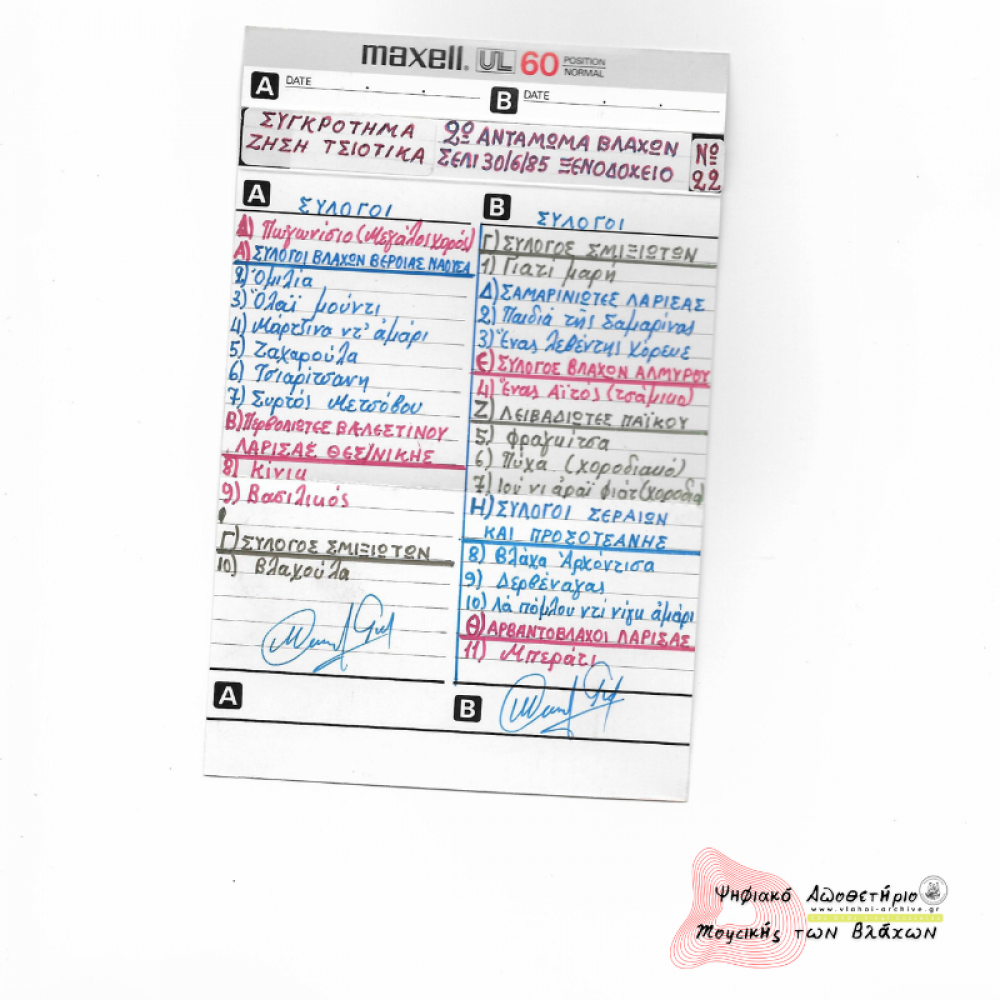 maxell. UL 60 POSITION NORMAL
A DATE . . B DATE . .
ΣΥΓΚΡΟΤΗΜΑ
ΖΗΣΗ ΤΣΙΟΤΙΚΑ
2ο ΑΝΤΑΜΩΜΑ ΒΛΑΧΩΝ
ΣΕΛΙ 30/6/85 ΞΕΝΟΔΟΧΕΙΟ
Νο
22
A ΣΥΛΟΓΟΙ
1) Πωγωνίσιο (Μεγάλοι χορός)
Α) ΣΥΛΟΓΟΙ ΒΛΑΧΩΝ ΒΕΡΟΙΑΣ ΝΑΟΥΣΑ
2) Ὁμιλία
3) Ὅλαϊ μούντι
4) Μάρτζινα ντ' ἀμάρι
5) Ζαχαρούλα
6) Τσιαρίτσανη
7) Συρτός Μετσόβου
Β) Περβολιωτες ΒΕΛΕΣΤΙΝΟΥ
ΛΑΡΙΣΑΣ ΘΕΣ/ΝΙΚΗΣ
8) Κίνικ
9) Βασιλικός
Γ) ΣΥΛΟΓΟΣ ΣΜΙΞΙΩΤΩΝ
10) Βλαχούλα
B ΣΥΛΟΓΟΙ
Γ) ΣΥΛΟΓΟΣ ΣΜΙΞΙΩΤΩΝ
1) Γιατι μαρή
Δ) ΣΑΜΑΡΙΝΙΩΤΕΣ ΛΑΡΙΣΑΣ
2) Παιδιά τῆς Σαμαρίνας
3) Ἕνας λεβέντης χόρευε
Ε) ΣΥΛΟΓΟΣ ΒΛΑΧΩΝ ΑΛΜΥΡΟΥ
4) Ἕνας Αϊτός (τσάμικο)
Ζ) ΛΕΙΒΑΔΙΩΤΕΣ ΠΑΪΚΟΥ
5) Φραγκίτσα
6) Πύχα (χοροδιακό)
7) Ιού νι ἀραϊ φιάτ (χοροδια
Η) ΣΥΛΟΓΟΙ ΣΕΡΑΙΩΝ
ΚΑΙ ΠΡΟΣΟΤΣΑΝΗΣ
8) Βλάχα Ἀρχόντισα
9) Δερβέναγας
10) Λά πόμλου ντί νίγκ ἀμάρι
Θ) ΑΡΒΑΝΤΟΒΛΑΧΟΙ ΛΑΡΙΣΑΣ
11) Μπεράτι
A
B
Ψηφιακό Αποθετήριο
www.vlahoi-archive.gr
Μουσικής των Βλάχων